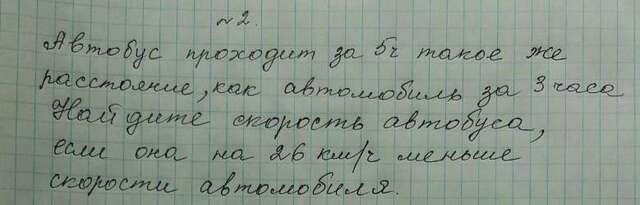 №2.
Автобус проходит за 5ч такое же
расстояние, как автомобиль за 3 часа
Найдите скорость автобуса,
если она на 26 км/ч меньше
скорости автомобиля.